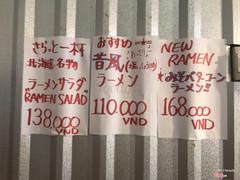 さらっと一杯
北海道名物
ラーメンサラダ
"RAMEN SALAD"
138.000
VND
おすすめ
昔風
ラーメン
110.000
VND
NEW
RAMEN
みそバターコーン
ラーメン!!
168.000
VND